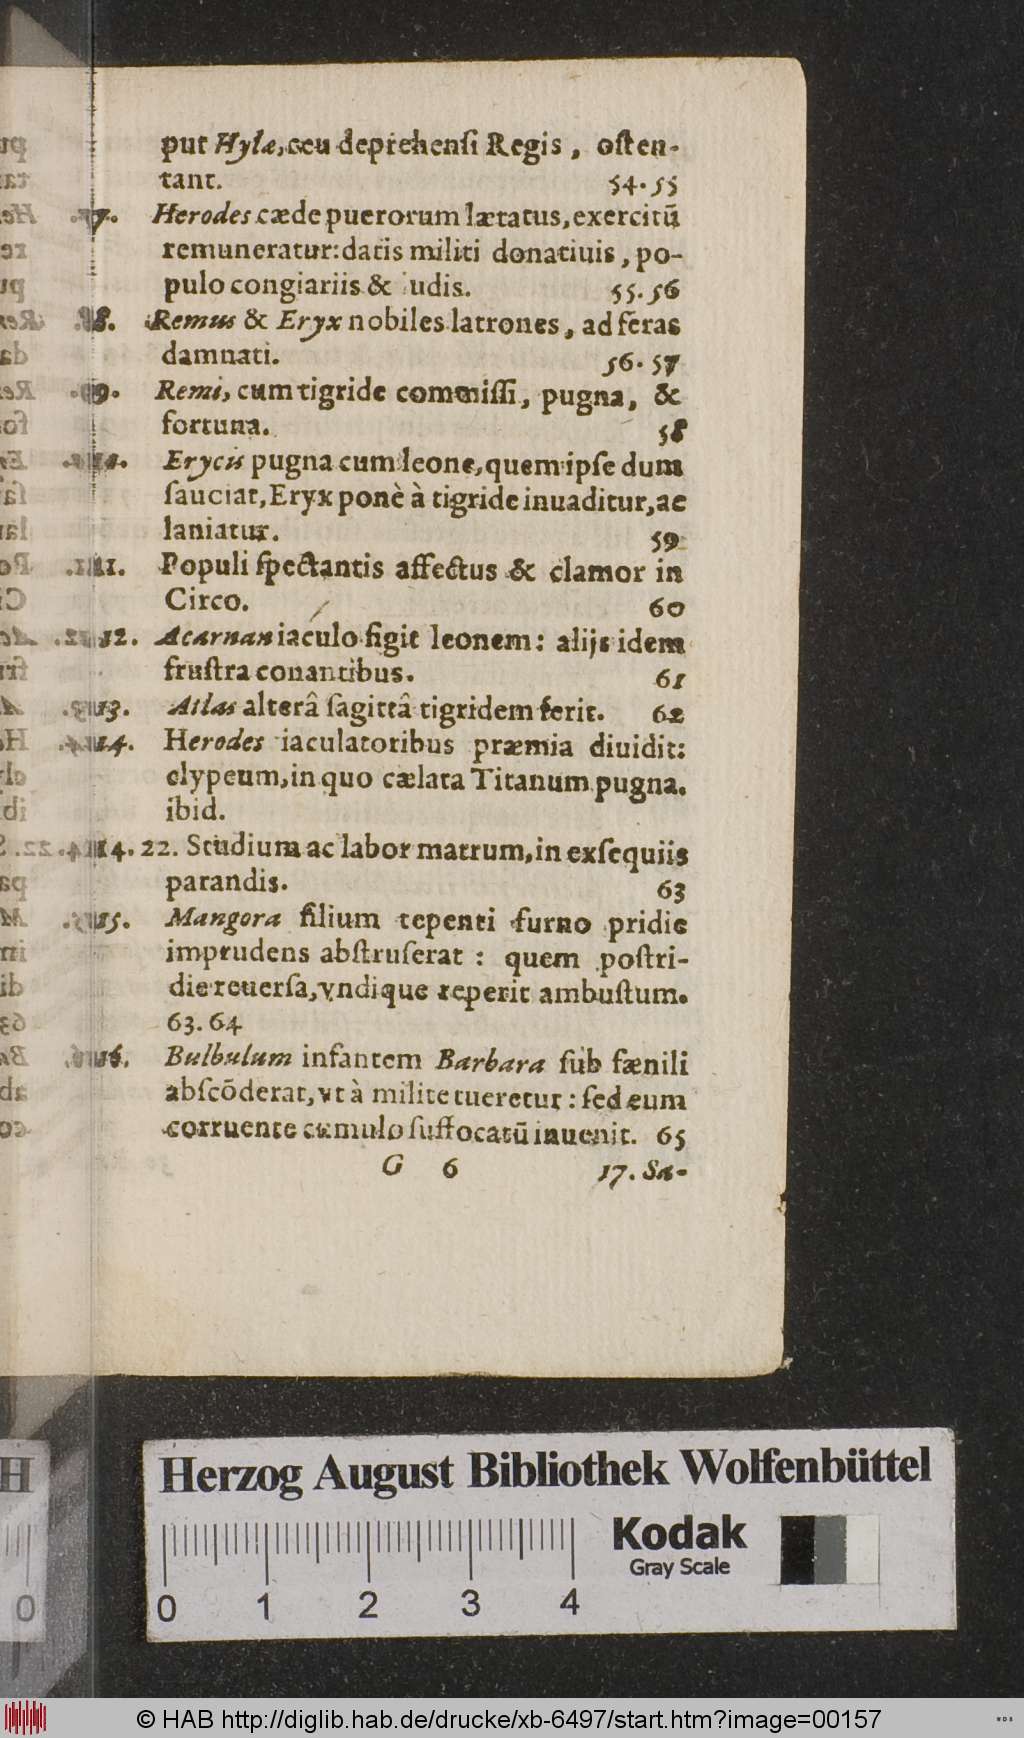 put Hylæ, ceu deprehenſi Regis, oſten-
tant. 54.55
7. Herodes cæde puerorum lætatus, exercitū
remuneratur: datis militi donatiuis, po-
pulo congiariis & udis. 55.56
8. Remus & Eryx nobiles latrones, ad feras
damnati. 56.57
9. Remi, cum tigride commiſſi, pugna, &
fortuna. 58
Erycis pugna cum leone, quem ipſe dum
ſauciat, Eryx ponè à tigride inuaditur, ac
laniatur. 59
11. Populi ſpectantis affectus & clamor in
Circo. 60
12. Acarnan iaculo figit leonem: alijs idem
fruſtra conantibus. 61
13. Atlas alterâ ſagittâ tigridem ferit. 62
14. Herodes iaculatoribus præmia diuidit:
clypeum, in quo cælata Titanum pugna.
ibid.
14. 22. Studium ac labor matrum, in exſequiis
parandis. 63
15. Mangora filium tepenti furno pridie
imprudens abſtruſerat : quem poſtri-
die reuerſa, vndique reperit ambuſtum.
63. 64
16. Bulbulum infantem Barbara ſub fænili
abſcōderat, vt à milite tueretur : ſed eum
corruente cumulo ſuffocatū inuenit. 65
G 6 17. Sa-
Herzog August Bibliothek Wolfenbüttel
Kodak
Gray Scale
0 1 2 3 4
© HAB http://diglib.hab.de/drucke/xb-6497/start.htm?image=00157